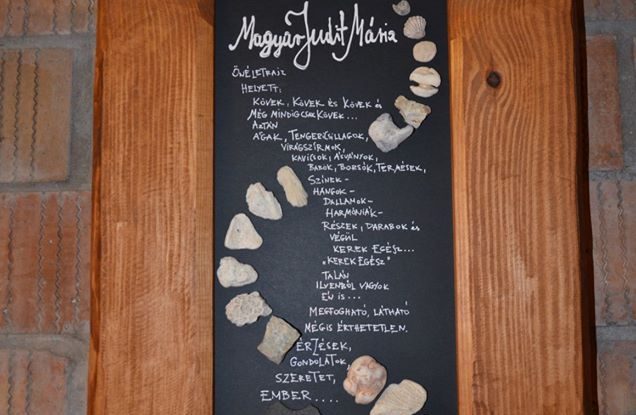 Magyar Judit Mária
ÖNÉLETRAJZ
HELYETT:
KÖVEK, KÖVEK ÉS KÖVEK ÉS
MÉG MINDIG CSAK KÖVEK...
AZTÁN
ÁGAK, TENGERICSILLAGOK,
VIRÁGSZIRMOK,
KAVICSOK, ÁSVÁNYOK,
BABOK, BORSÓK, TERMÉSEK,
SZÍNEK-
HANGOK-
DALLAMOK-
HARMÓNIÁK-
RÉSZEK, DARABOK ÉS
VÉGÜL
KEREK EGÉSZ...
"KEREK EGÉSZ"
TALÁN
ILYENBŐL VAGYOK
ÉN IS...
MEGFOGHATÓ, LÁTHATÓ
MÉGIS ÉRTHETETLEN.
ÉRZÉSEK,
GONDOLATOK,
SZERETET,
EMBER....